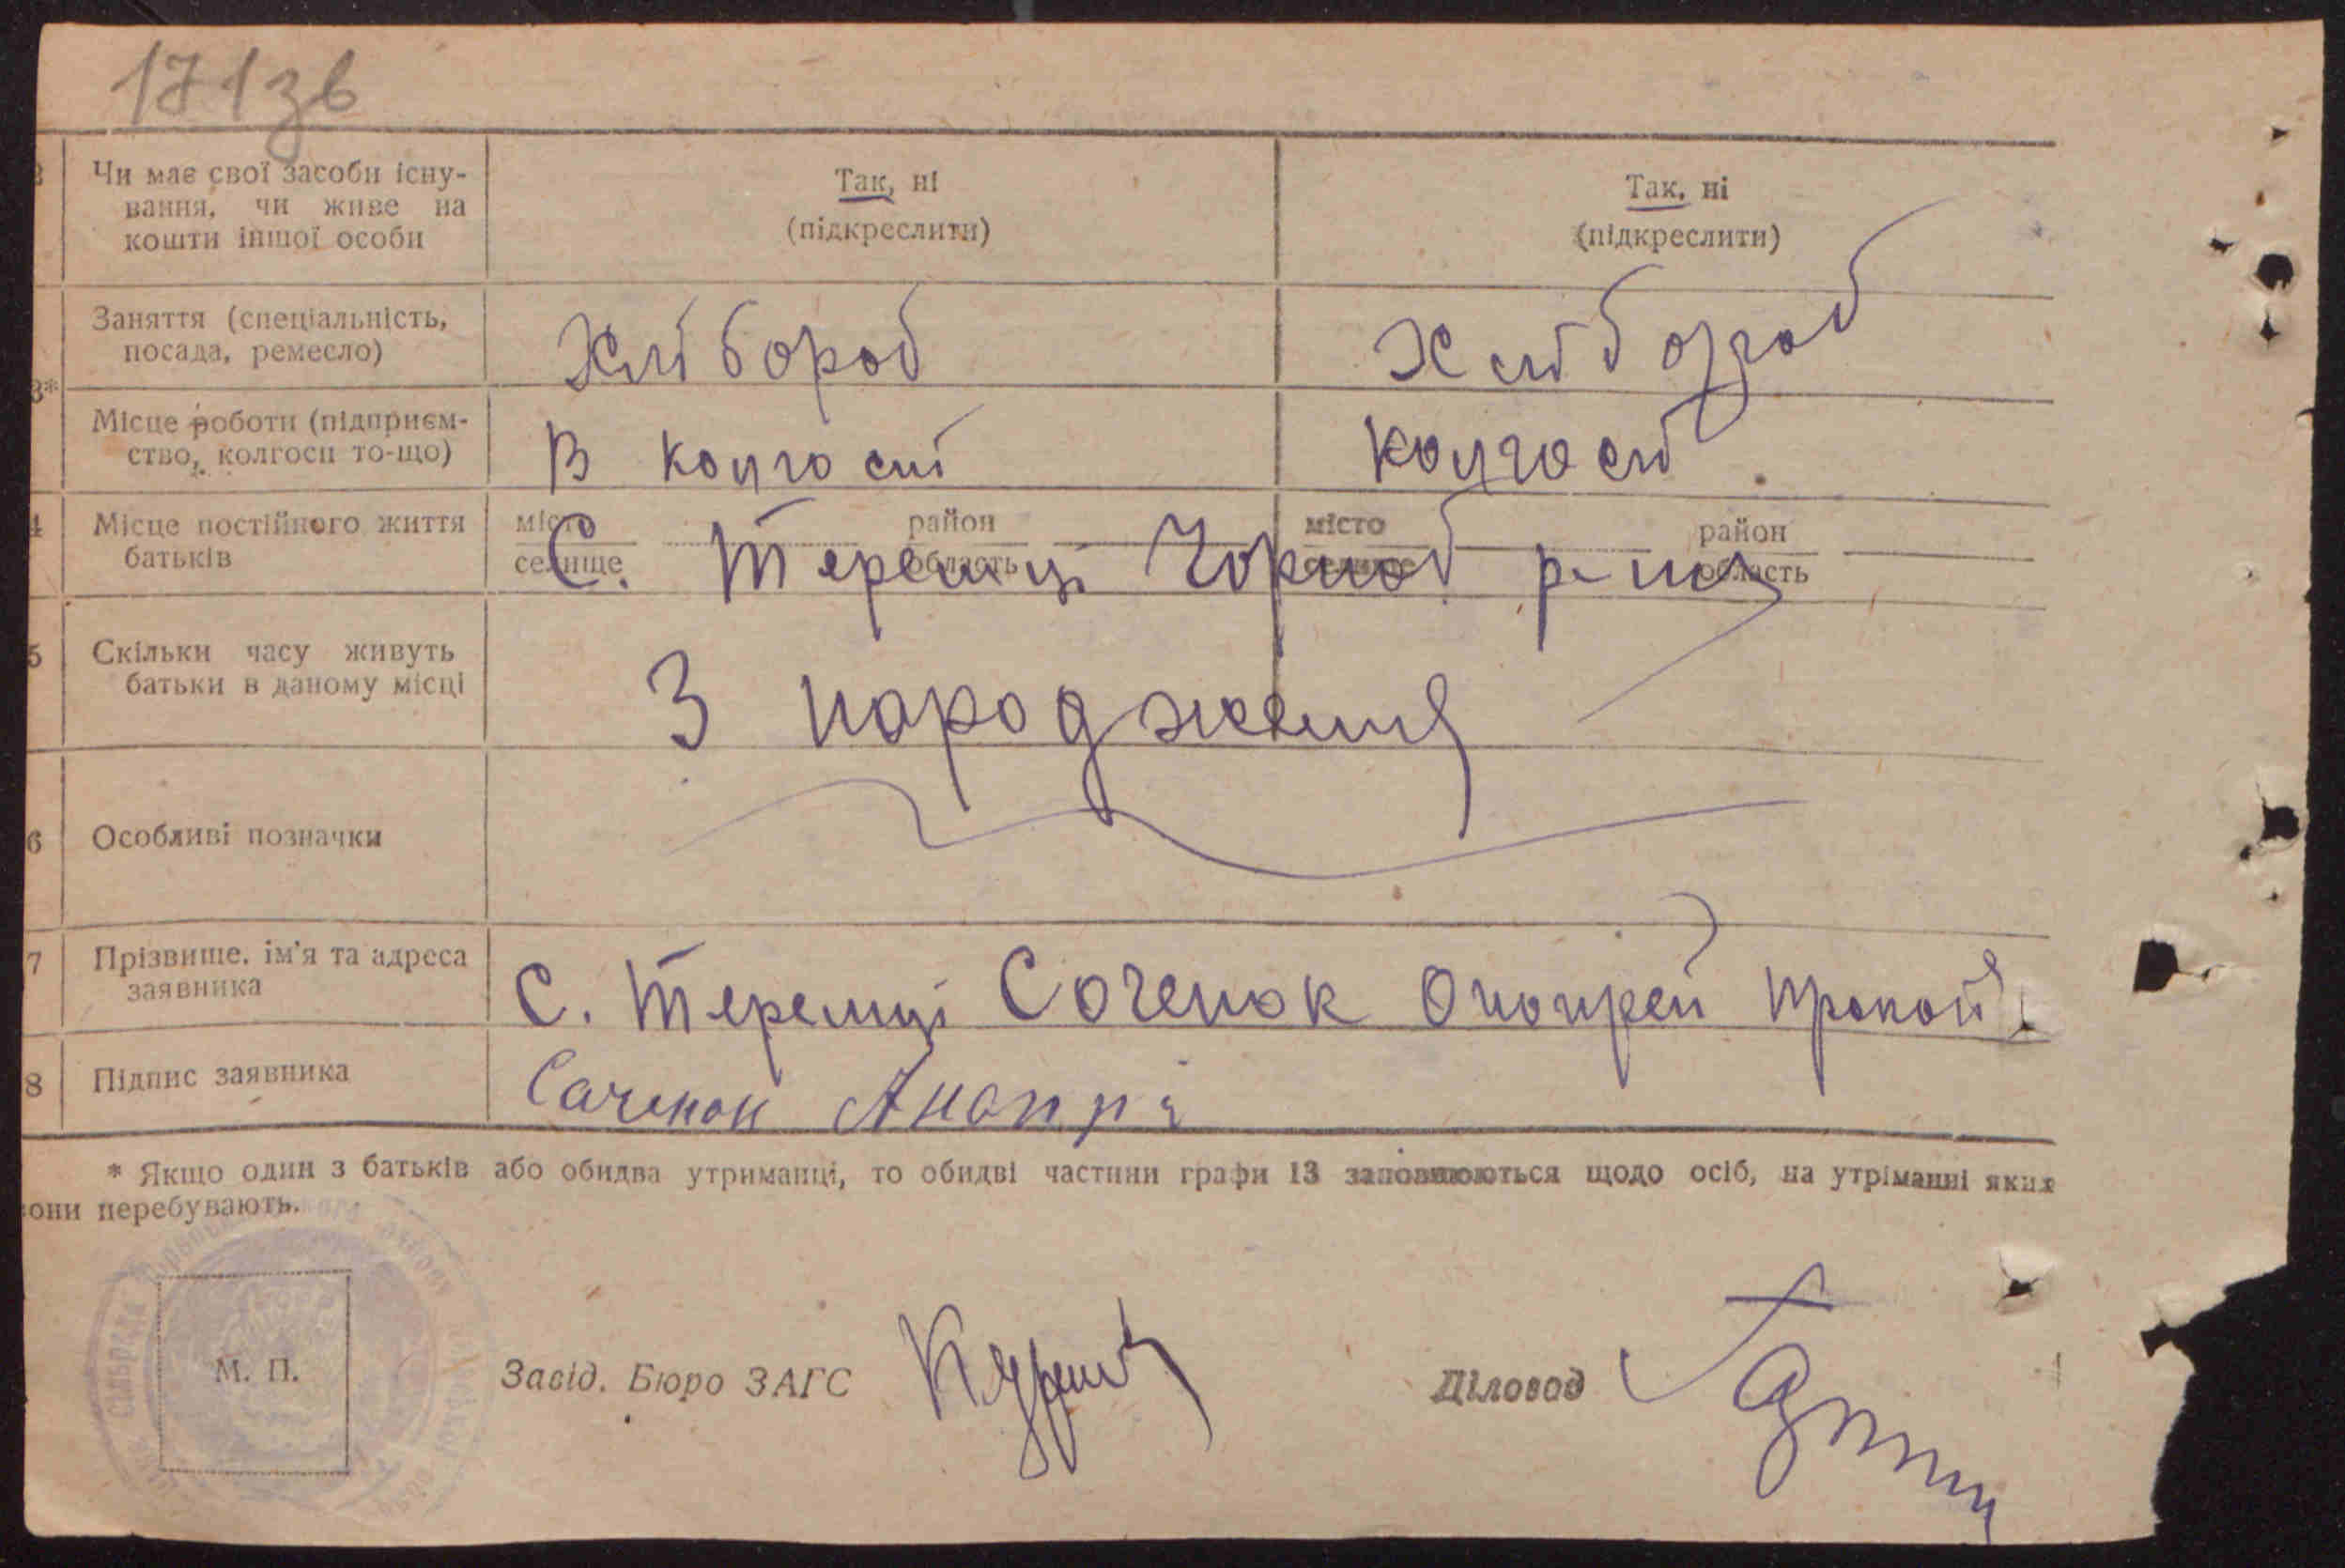 171зв
Чи має свої засоби існу-
вання, чи живе на
кошти іншої особи
Так, ні
(підкреслити)
Так, ні
(підкреслити)
Заняття (спеціальність,
посада, ремесло)
Хлібороб
Хлібороб
3*
Місце роботи (підприєм-
ство, колгосп то-що)
В колгоспі
колгоспі
4
Місце постійного життя
батьків
місто
селище
район
область
місто
селище
район
область
С. Теремці Чорноб р-ну
5
Скільки часу живуть
батьки в даному місці
З народження
6
Особливі позначки
7
Прізвище, ім'я та адреса
заявника
С. Теремці Соченок Оноирей
8
Підпис заявника
Саченок Анопрі
* Якщо один з батьків або обидва утриманці, то обидві частини графи 13 заповнюються щодо осіб, на утріманні яких
вони перебувають.
М. П.
Завід. Бюро ЗАГС
Діловод